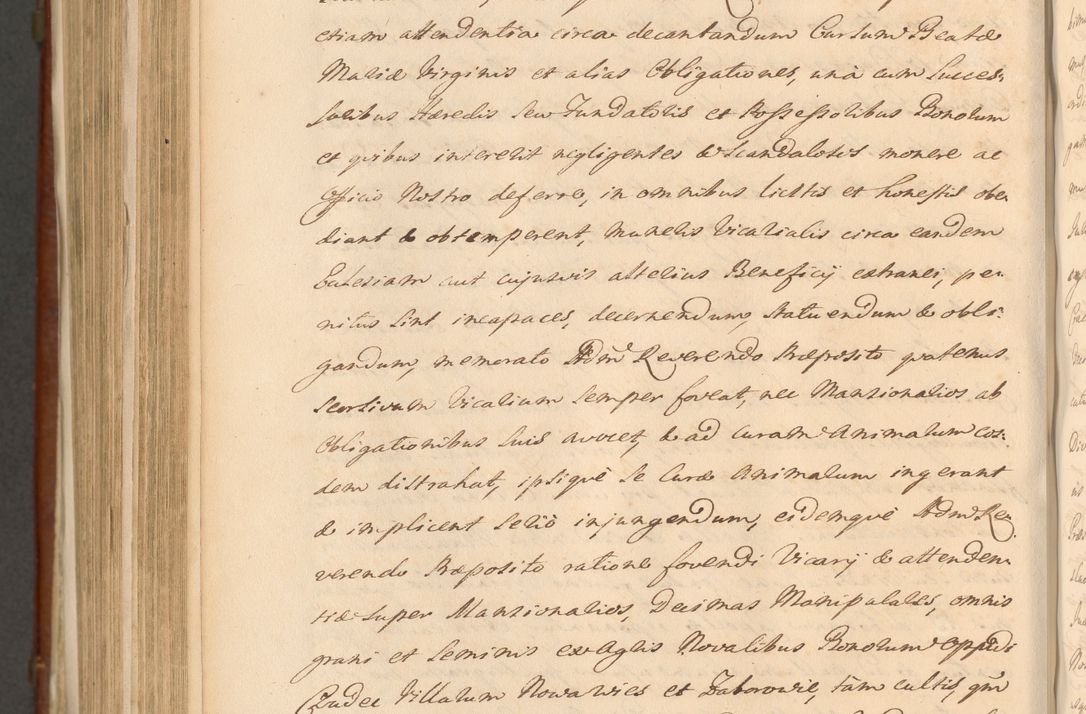 etiam attendentia circa decantandum Cursum Beatæ
Mariæ Virginis et alias Obligationes, unà cum Succes:
soribus Hæredis seu Fundatoris et Possessoribus Bonorum
et quibus intererit negligentes & Scandalosos monere ac
Officio Nostro deferre, in omnibus licitis et honestis obe:
diant & obtemperent, muneris Vicarialis circa eandem
Ecclesiam aut cujusvis alterius Beneficij extranei, pe:
nitus sint incapaces, decernendum, statuendum & obli:
gandum, memorato Admº Reverendo Præposito quatenus
seorsivum Vicarium semper foveat, nec Mansionarios ab
Obligationibus suis avocet, & ad curam Animarum eos:
dem distrahat, ipsiquè se Curæ Animarum ingerant
& implicent seriò injungendum, eidemquè Admº Re:
verendo Præposito ratione fovendi Vicarij & attenden:
tiæ super Mansionarios, Decimas Manipulares, omnis
grani et seminis ex Agris Novalibus Bonorum Oppidi
Villarum Nowawies et Zaborowie, tàm cultis, qm̃